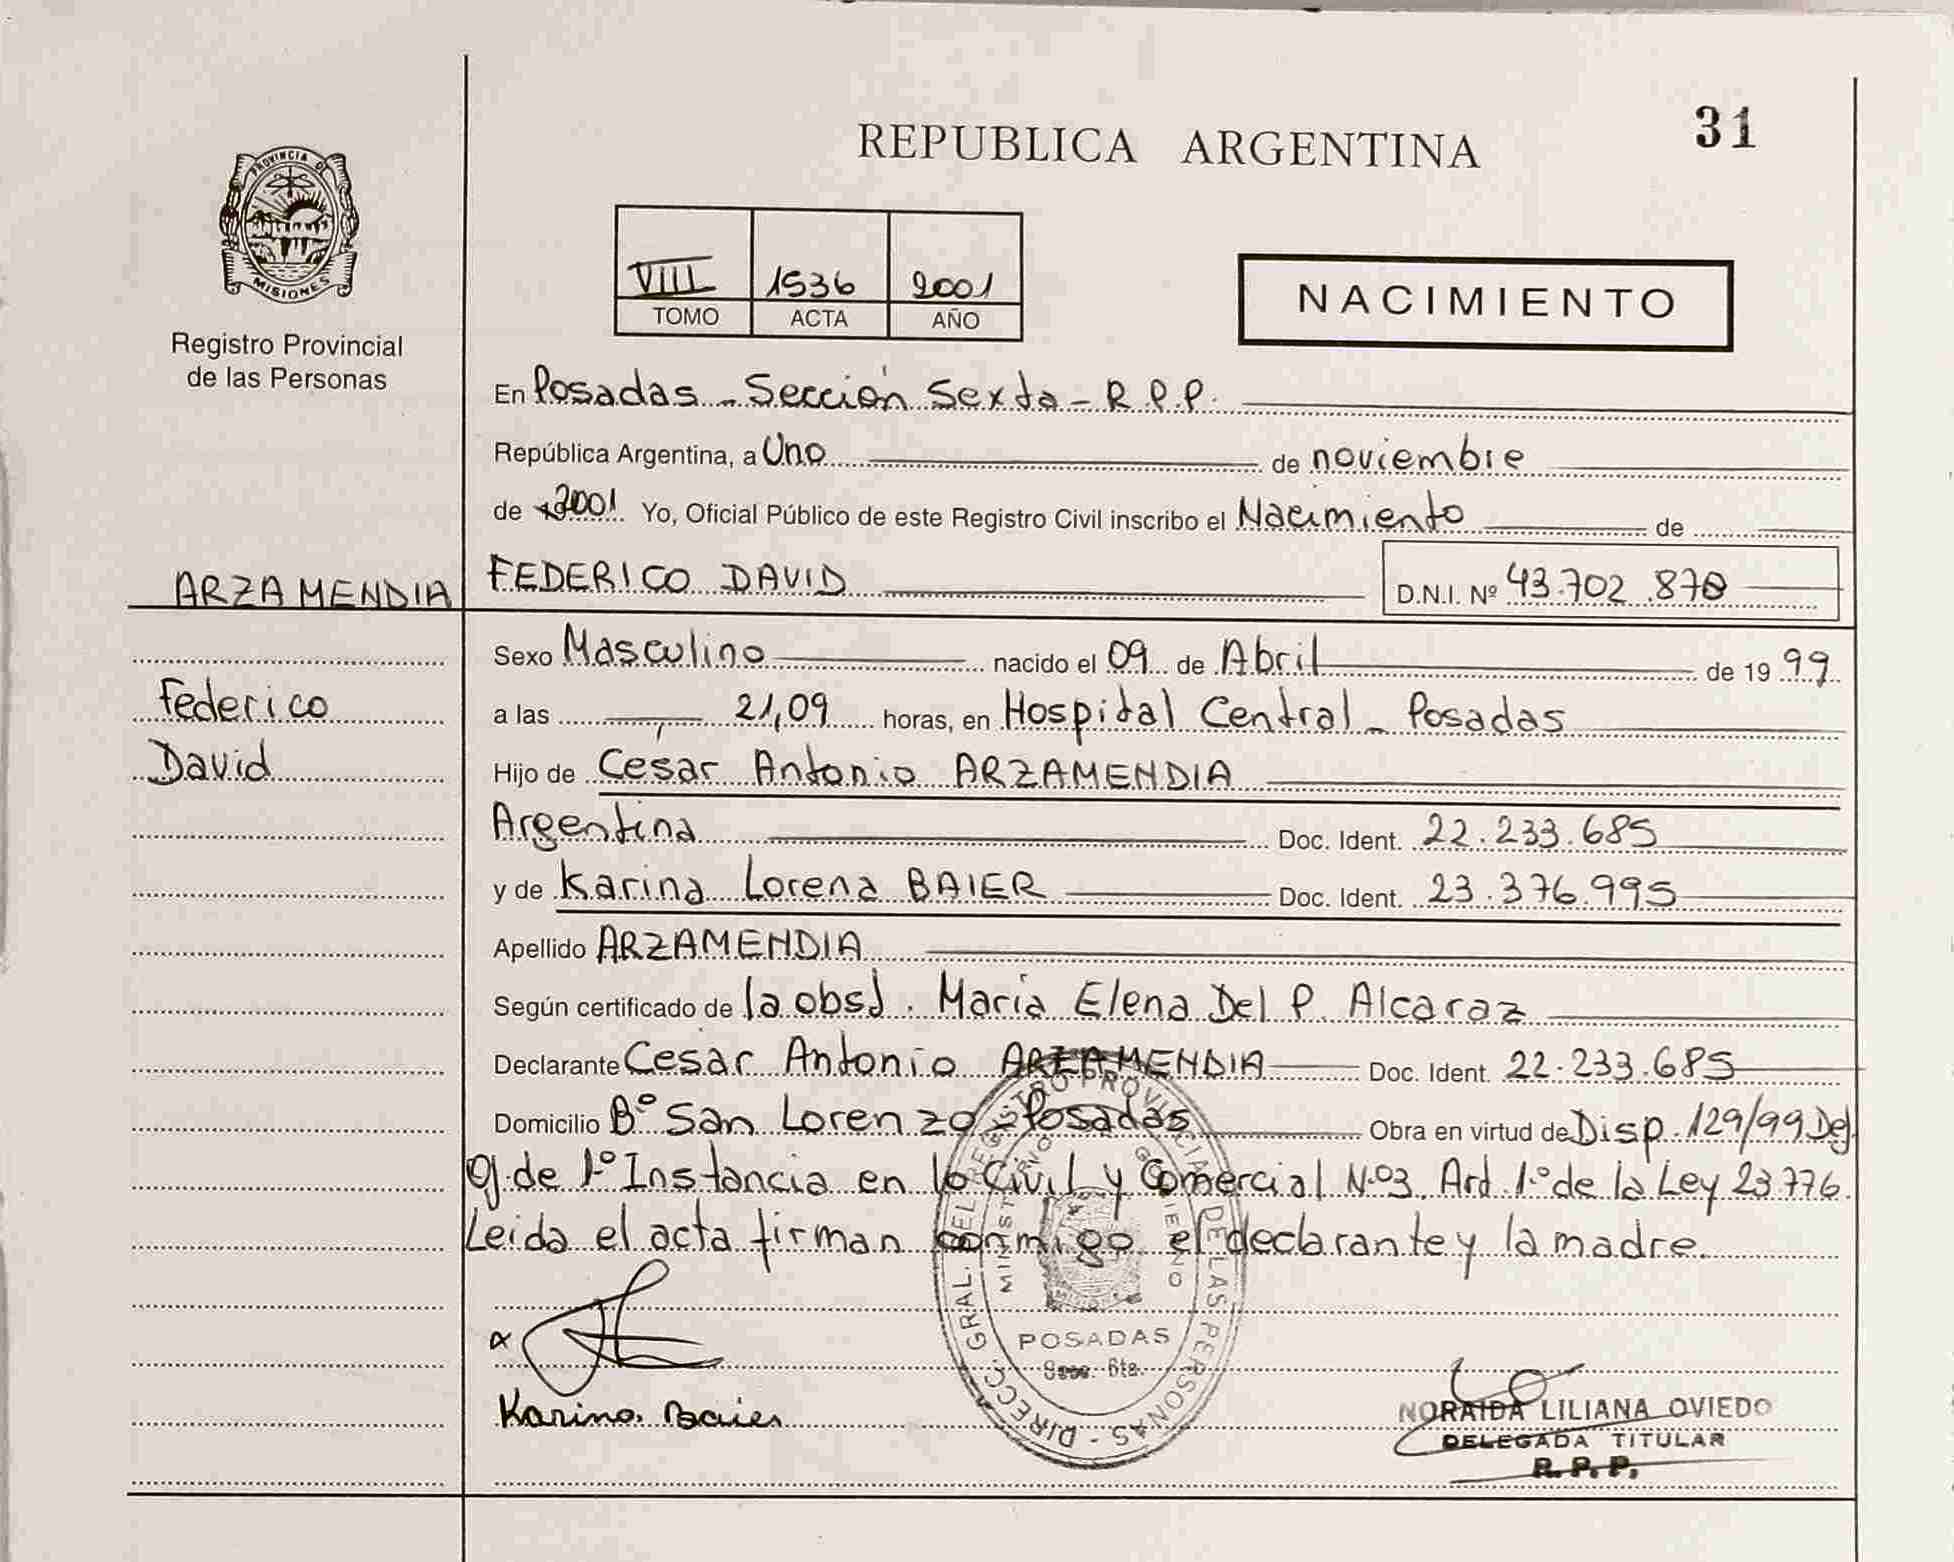 31
REPUBLICA ARGENTINA
PROVINCIA DE
MISIONES
Registro Provincial
de las Personas
VIII 1536 2001
TOMO ACTA AÑO
NACIMIENTO
En Posadas - Sección Sexta - R.P.P.
República Argentina, a Uno de noviembre
de 2001 Yo, Oficial Público de este Registro Civil inscribo el Nacimiento de
ARZAMENDIA FEDERICO DAVID D.N.I. Nº 43.702.878
Sexo Masculino nacido el 09 de Abril de 19 99
Federico a las 21,09 horas, en Hospital Central - Posadas
David Hijo de Cesar Antonio ARZAMENDIA
Argentina Doc. Ident. 22.233.685
y de Karina Lorena BAIER Doc. Ident. 23.376.995
Apellido ARZAMENDIA
Según certificado de la obst. Maria Elena Del P. Alcaraz
Declarante Cesar Antonio ARZAMENDIA Doc. Ident. 22.233.685
Domicilio Bº San Lorenzo - Posadas Obra en virtud de Disp. 129/99 Def.
Of. de 1º Instancia en lo Civil y Comercial Nº3. Art. 1º de la Ley 23.776.
Leida el acta firman conmigo el declarante y la madre
DIRECC. GRAL. DEL REGISTRO PROVINCIAL DE LAS PERSONAS -
MINISTERIO GOBIERNO
POSADAS
Secc. 6ta.
Karina Baier
NORAIDA LILIANA OVIEDO
DELEGADA TITULAR
R.P.P.